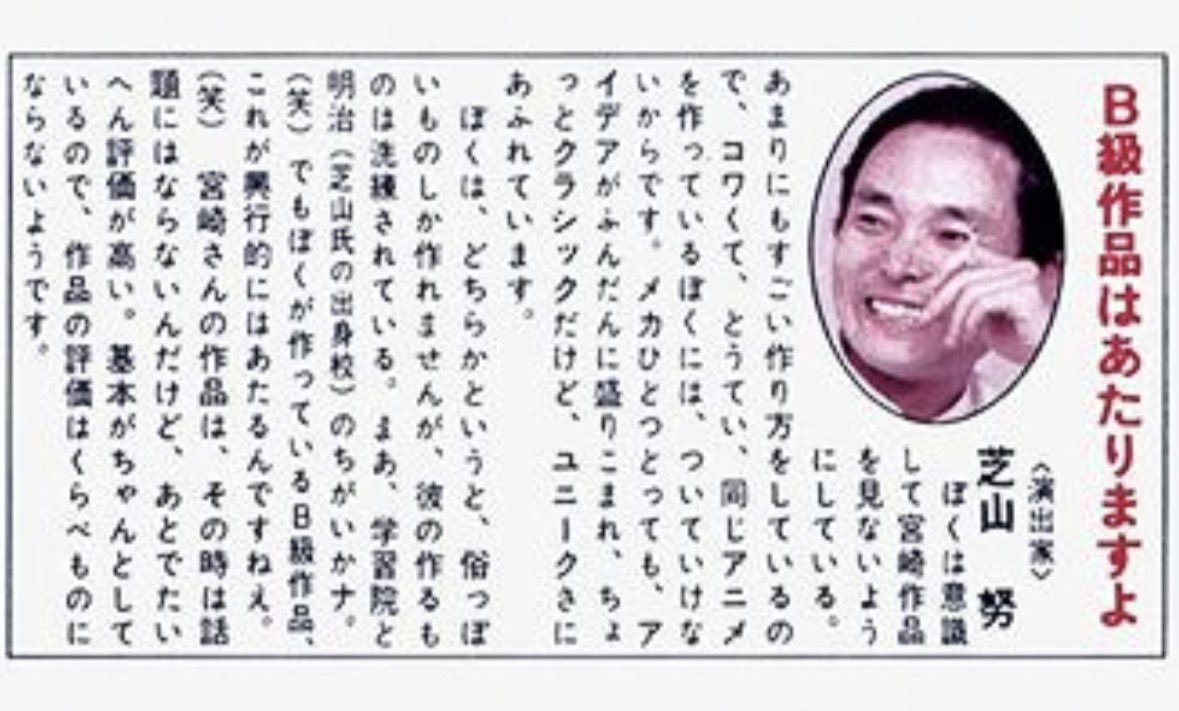 B級作品はあたりますよ
〈演出家〉
芝山 努
ぼくは意識
して宮崎作品
を見ないよう
にしている。
あまりにもすごい作り方をしているの
で、コワくて、とうてい、同じアニメ
を作っているぼくには、ついていけな
いからです。メカひとつとっても、ア
イデアがふんだんに盛りこまれ、ちょ
っとクラシックだけど、ユニークさに
あふれています。
ぼくは、どちらかというと、俗っぽ
いものしか作れませんが、彼の作るも
のは洗練されている。まあ、学習院と
明治（芝山氏の出身校）のちがいかナ。
（笑）でもぼくが作っているB級作品、
これが興行的にはあたるんですねえ。
（笑）　宮崎さんの作品は、その時は話
題にはならないんだけど、あとでたい
へん評価が高い。基本がちゃんとして
いるので、作品の評価はくらべものに
ならないようです。